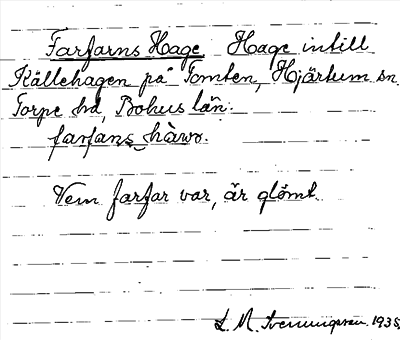 Farfarns Hage Hage intill
Källehagen på Tomten, Hjärtum sn
Torpe hd, Bohus län.
farfans
Vem farfar var, är glömt.
L. M. Svenungsson 1935